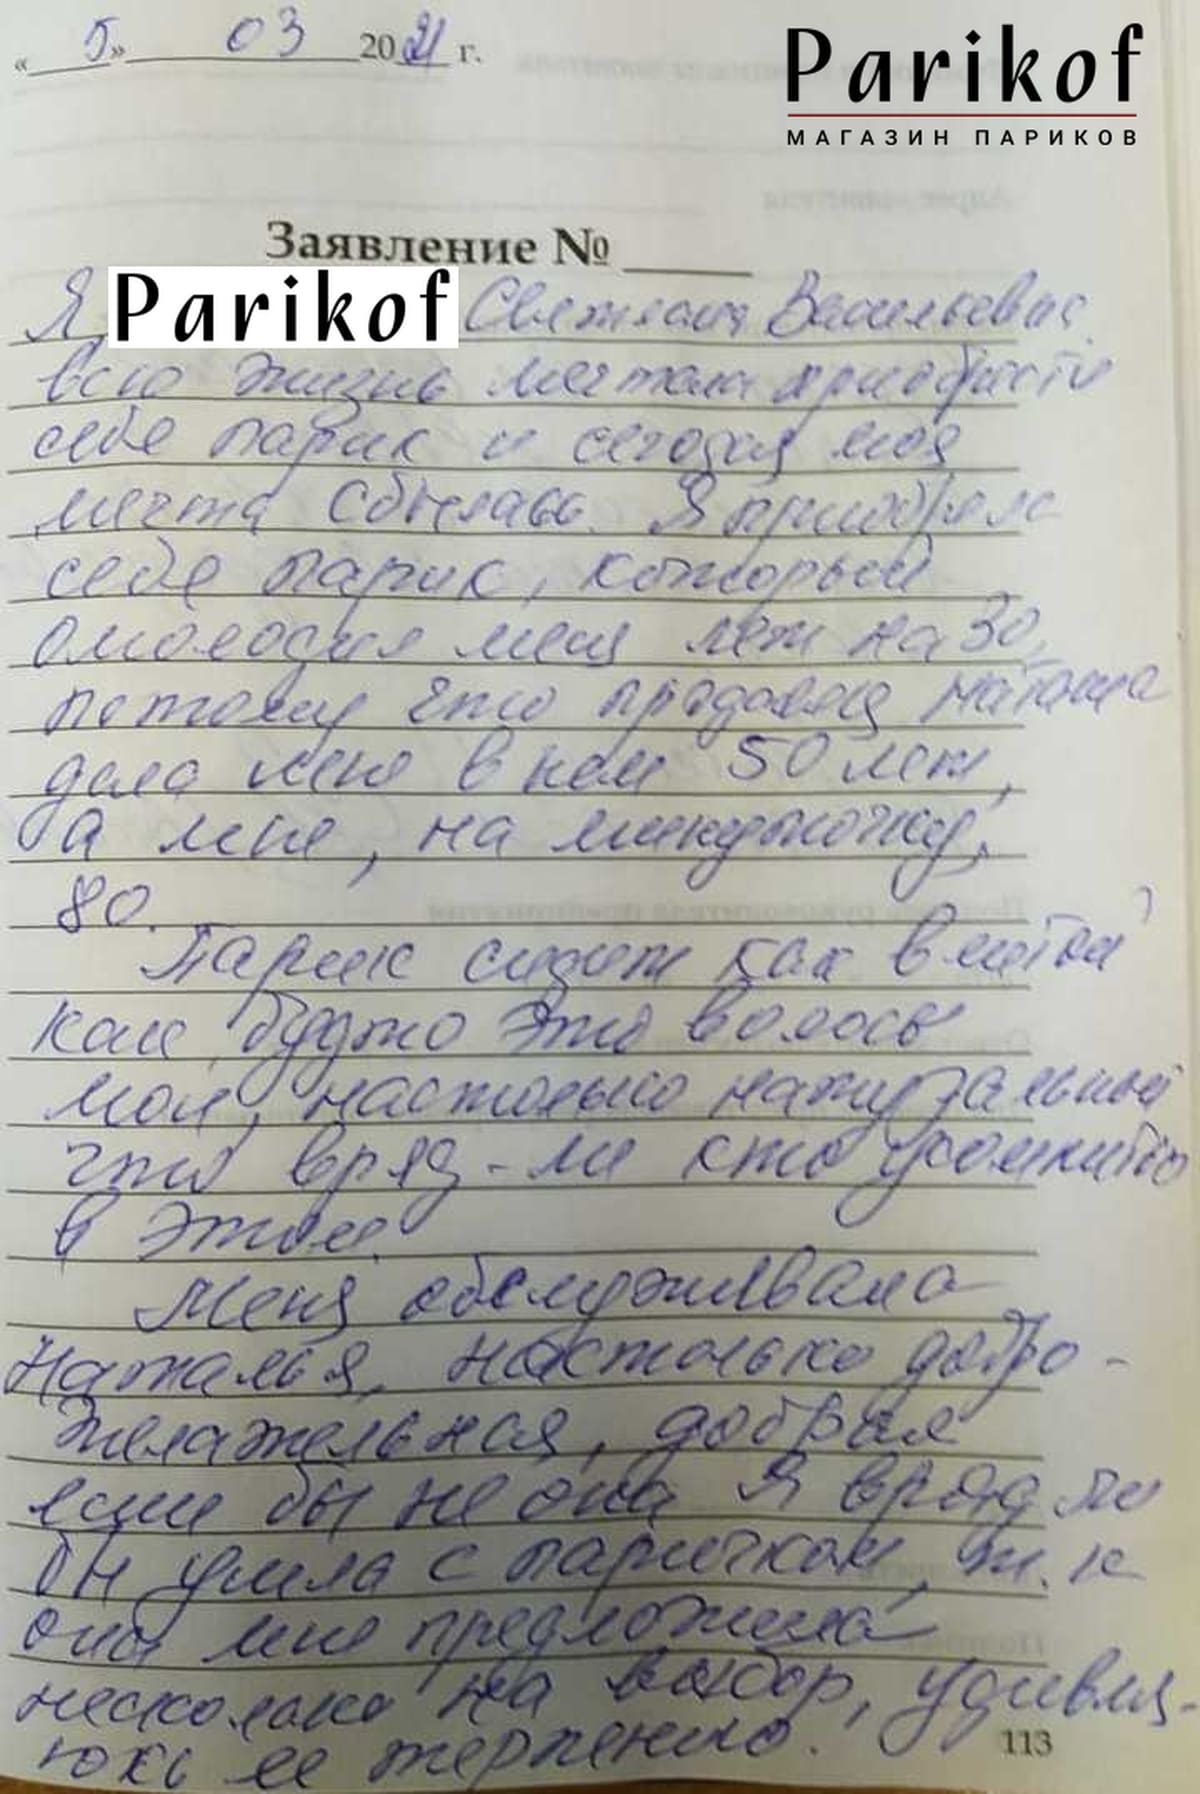 « 5 » 03 2021 г.
Parikof
МАГАЗИН ПАРИКОВ
Заявление №
Я, Parikof Светлана Васильевна
всю жизнь мечтала приобрести
себе парик и сегодня моя
мечта сбылась. Я приобрела
себе парик, который
омолодил меня лет на 30,
потому что продавец Наташа
дала мне в нем 50 лет,
а мне, на минуточку,
80.
Парик сидит как влитой
как будто это волосы
мои, настолько натуральный
что вряд-ли кто усомнится
в этом.
Меня обслуживала
Наталья, настолько добро-
желательная, добрая
если бы не она я вряд ли
бы ушла с паричком, т.к
она мне предложила
несколько на выбор, удивля-
юсь ее терпению.
113